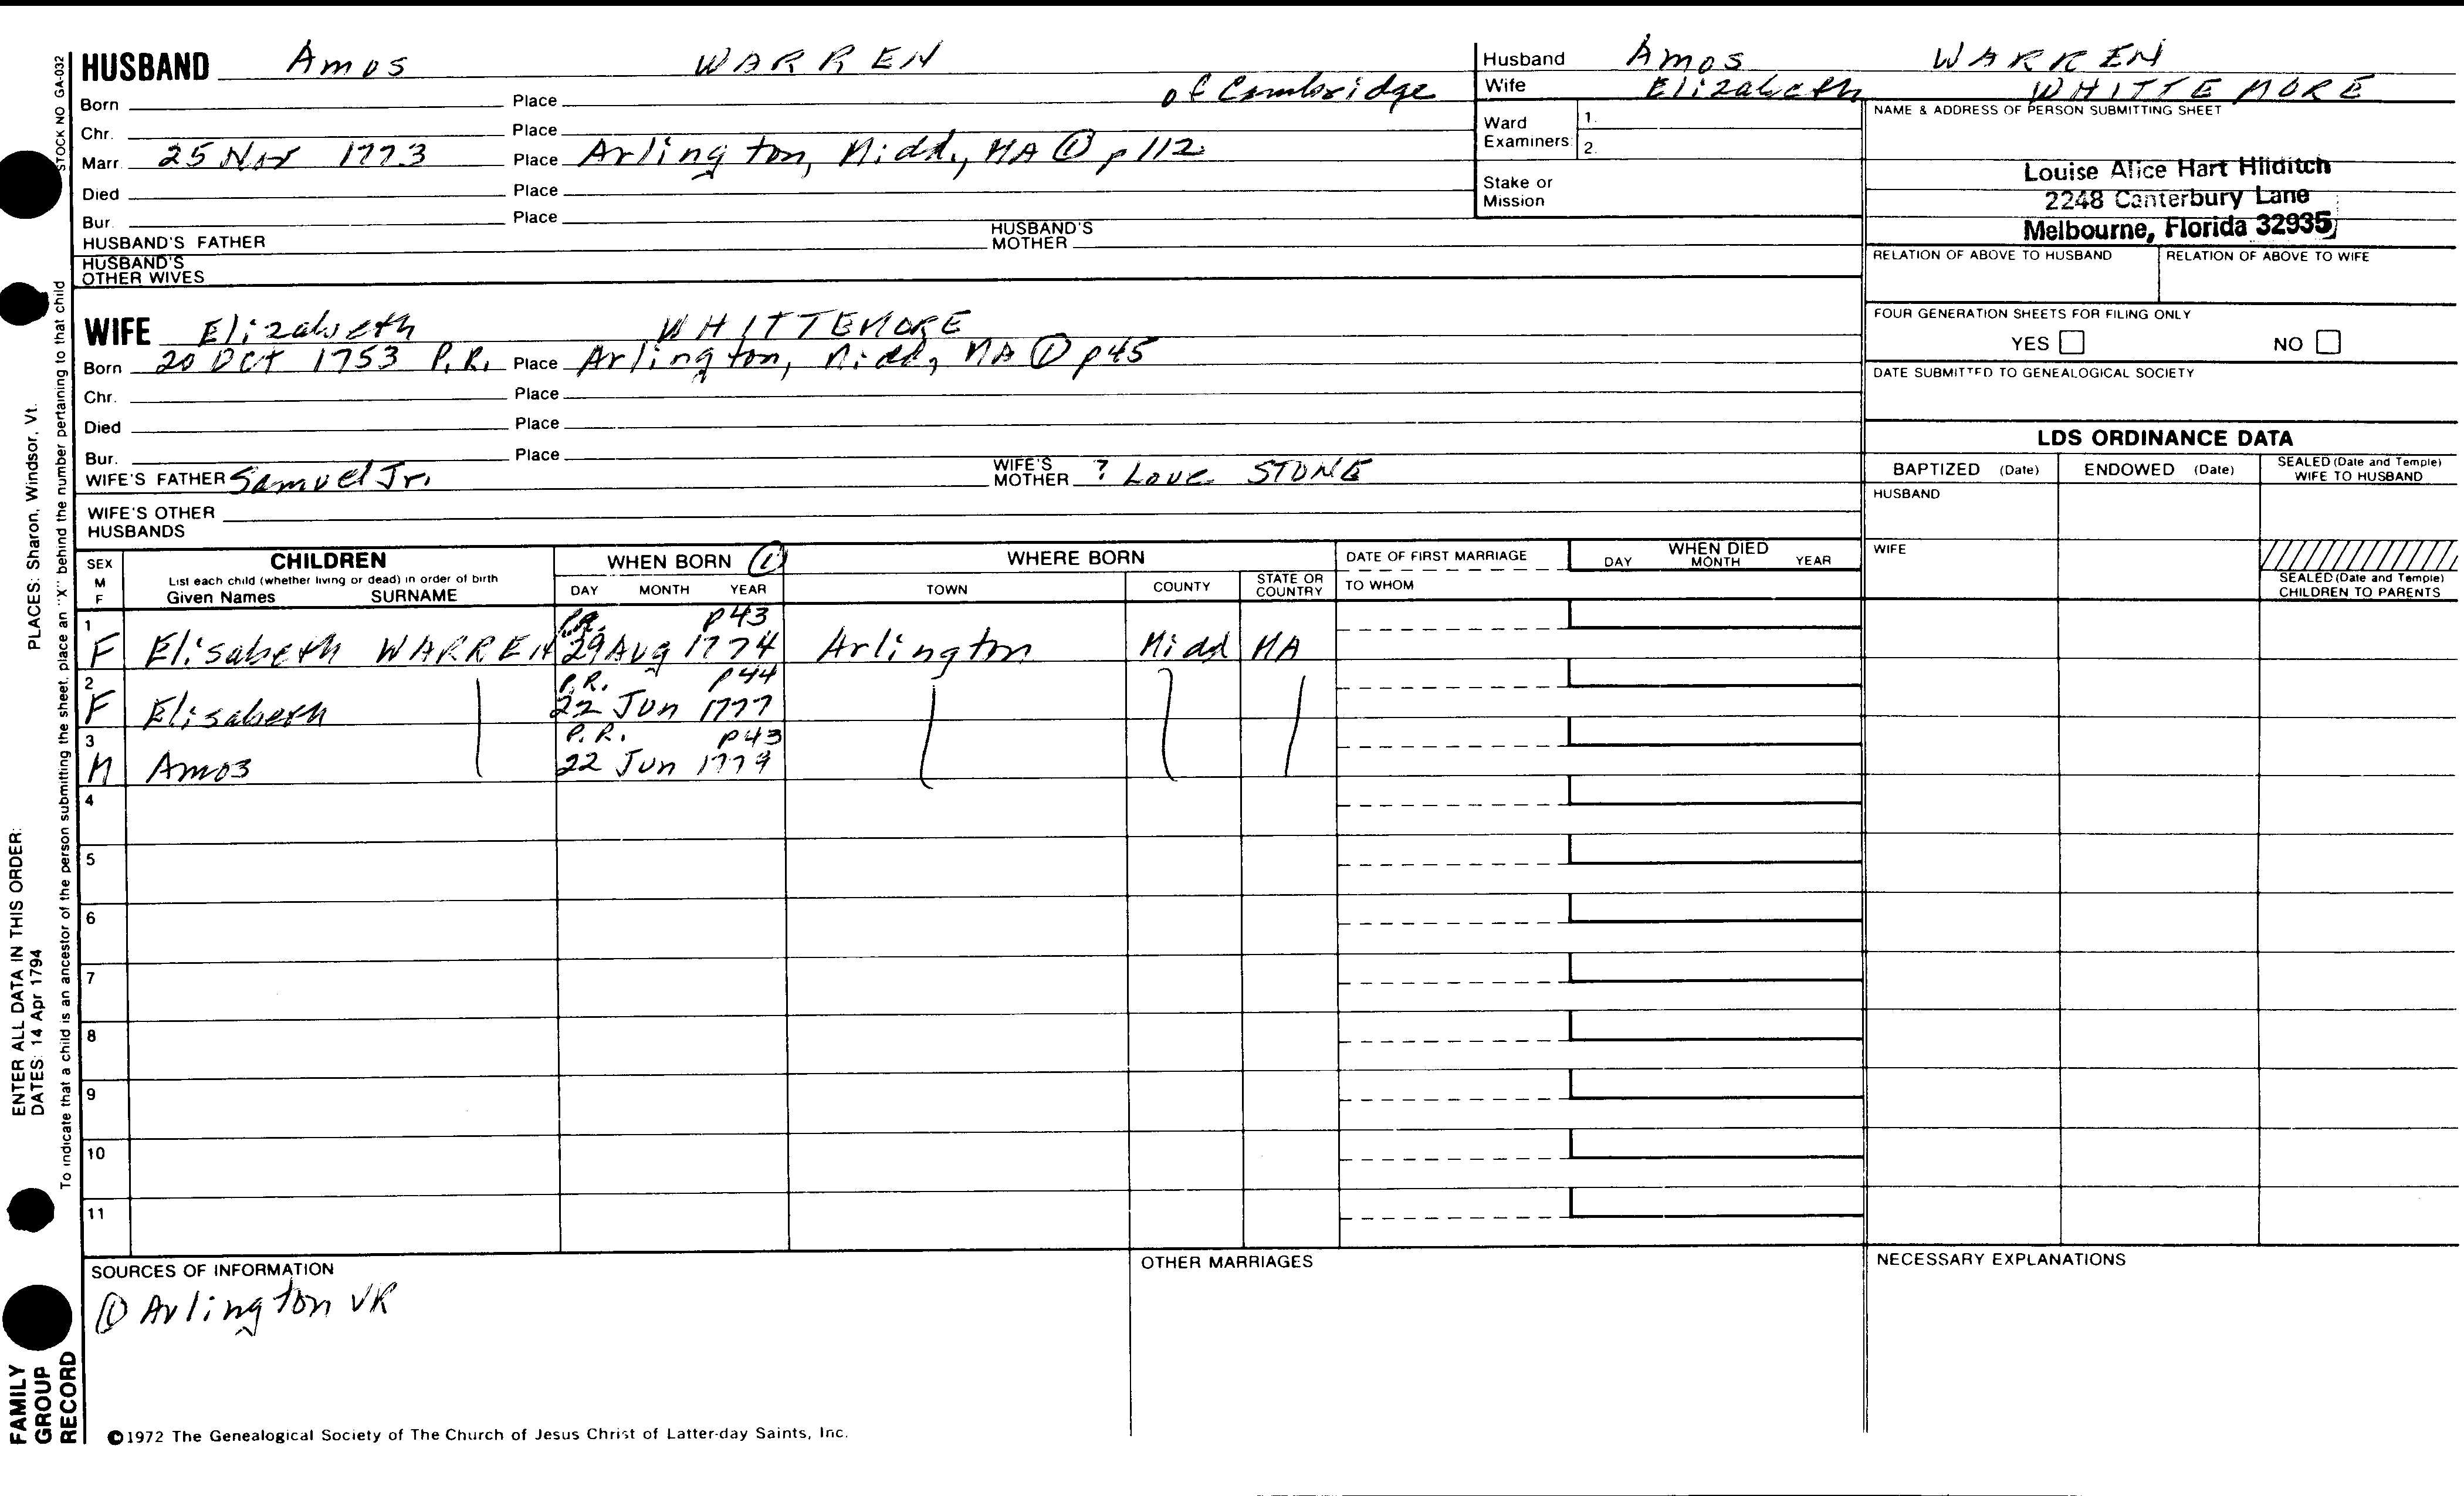 HUSBAND Amos WARREN
of Cambridge
Born Place
Chr. Place
Marr. 25 Nov 1773 Place Arlington, Midd., MA ① p112
Died Place
Bur. Place
HUSBAND'S FATHER HUSBAND'S MOTHER
HUSBAND'S OTHER WIVES
Husband Amos WARREN
Wife Elizabeth WHITTEMORE
Ward Examiners 1.
2.
Stake or Mission
NAME & ADDRESS OF PERSON SUBMITTING SHEET
Louise Alice Hart Hilditch
2248 Canterbury Lane
Melbourne, Florida 32935
RELATION OF ABOVE TO HUSBAND RELATION OF ABOVE TO WIFE
FOUR GENERATION SHEETS FOR FILING ONLY
YES NO
DATE SUBMITTED TO GENEALOGICAL SOCIETY
WIFE Elizabeth WHITTEMORE
Born 20 Oct 1753 P.R. Place Arlington, Midd, MA ① p45
Chr. Place
Died Place
Bur. Place
WIFE'S FATHER Samuel Jr. WIFE'S MOTHER ? Love STONE
WIFE'S OTHER HUSBANDS
LDS ORDINANCE DATA
BAPTIZED (Date) ENDOWED (Date) SEALED (Date and Temple) WIFE TO HUSBAND
HUSBAND
WIFE
SEALED (Date and Temple) CHILDREN TO PARENTS
SEX M F
CHILDREN
List each child (whether living or dead) in order of birth
Given Names SURNAME
WHEN BORN ①
DAY MONTH YEAR
WHERE BORN
TOWN COUNTY STATE OR COUNTRY
DATE OF FIRST MARRIAGE
TO WHOM
WHEN DIED
DAY MONTH YEAR
P.R. p43
1 F Elisabeth WARREN 29 Aug 1774 Arlington Midd MA
P.R. p44
2 F Elisabeth 22 Jun 1777
P.R. p43
3 M Amos 22 Jun 1779
4
5
6
7
8
9
10
11
SOURCES OF INFORMATION
① Arlington VR
OTHER MARRIAGES
NECESSARY EXPLANATIONS
©1972 The Genealogical Society of The Church of Jesus Christ of Latter-day Saints, Inc.
STOCK NO GA-032
To indicate that a child is an ancestor of the person submitting the sheet, place an "X" behind the number pertaining to that child
PLACES: Sharon, Windsor, Vt.
ENTER ALL DATA IN THIS ORDER:
DATES: 14 Apr 1794
FAMILY
GROUP
RECORD